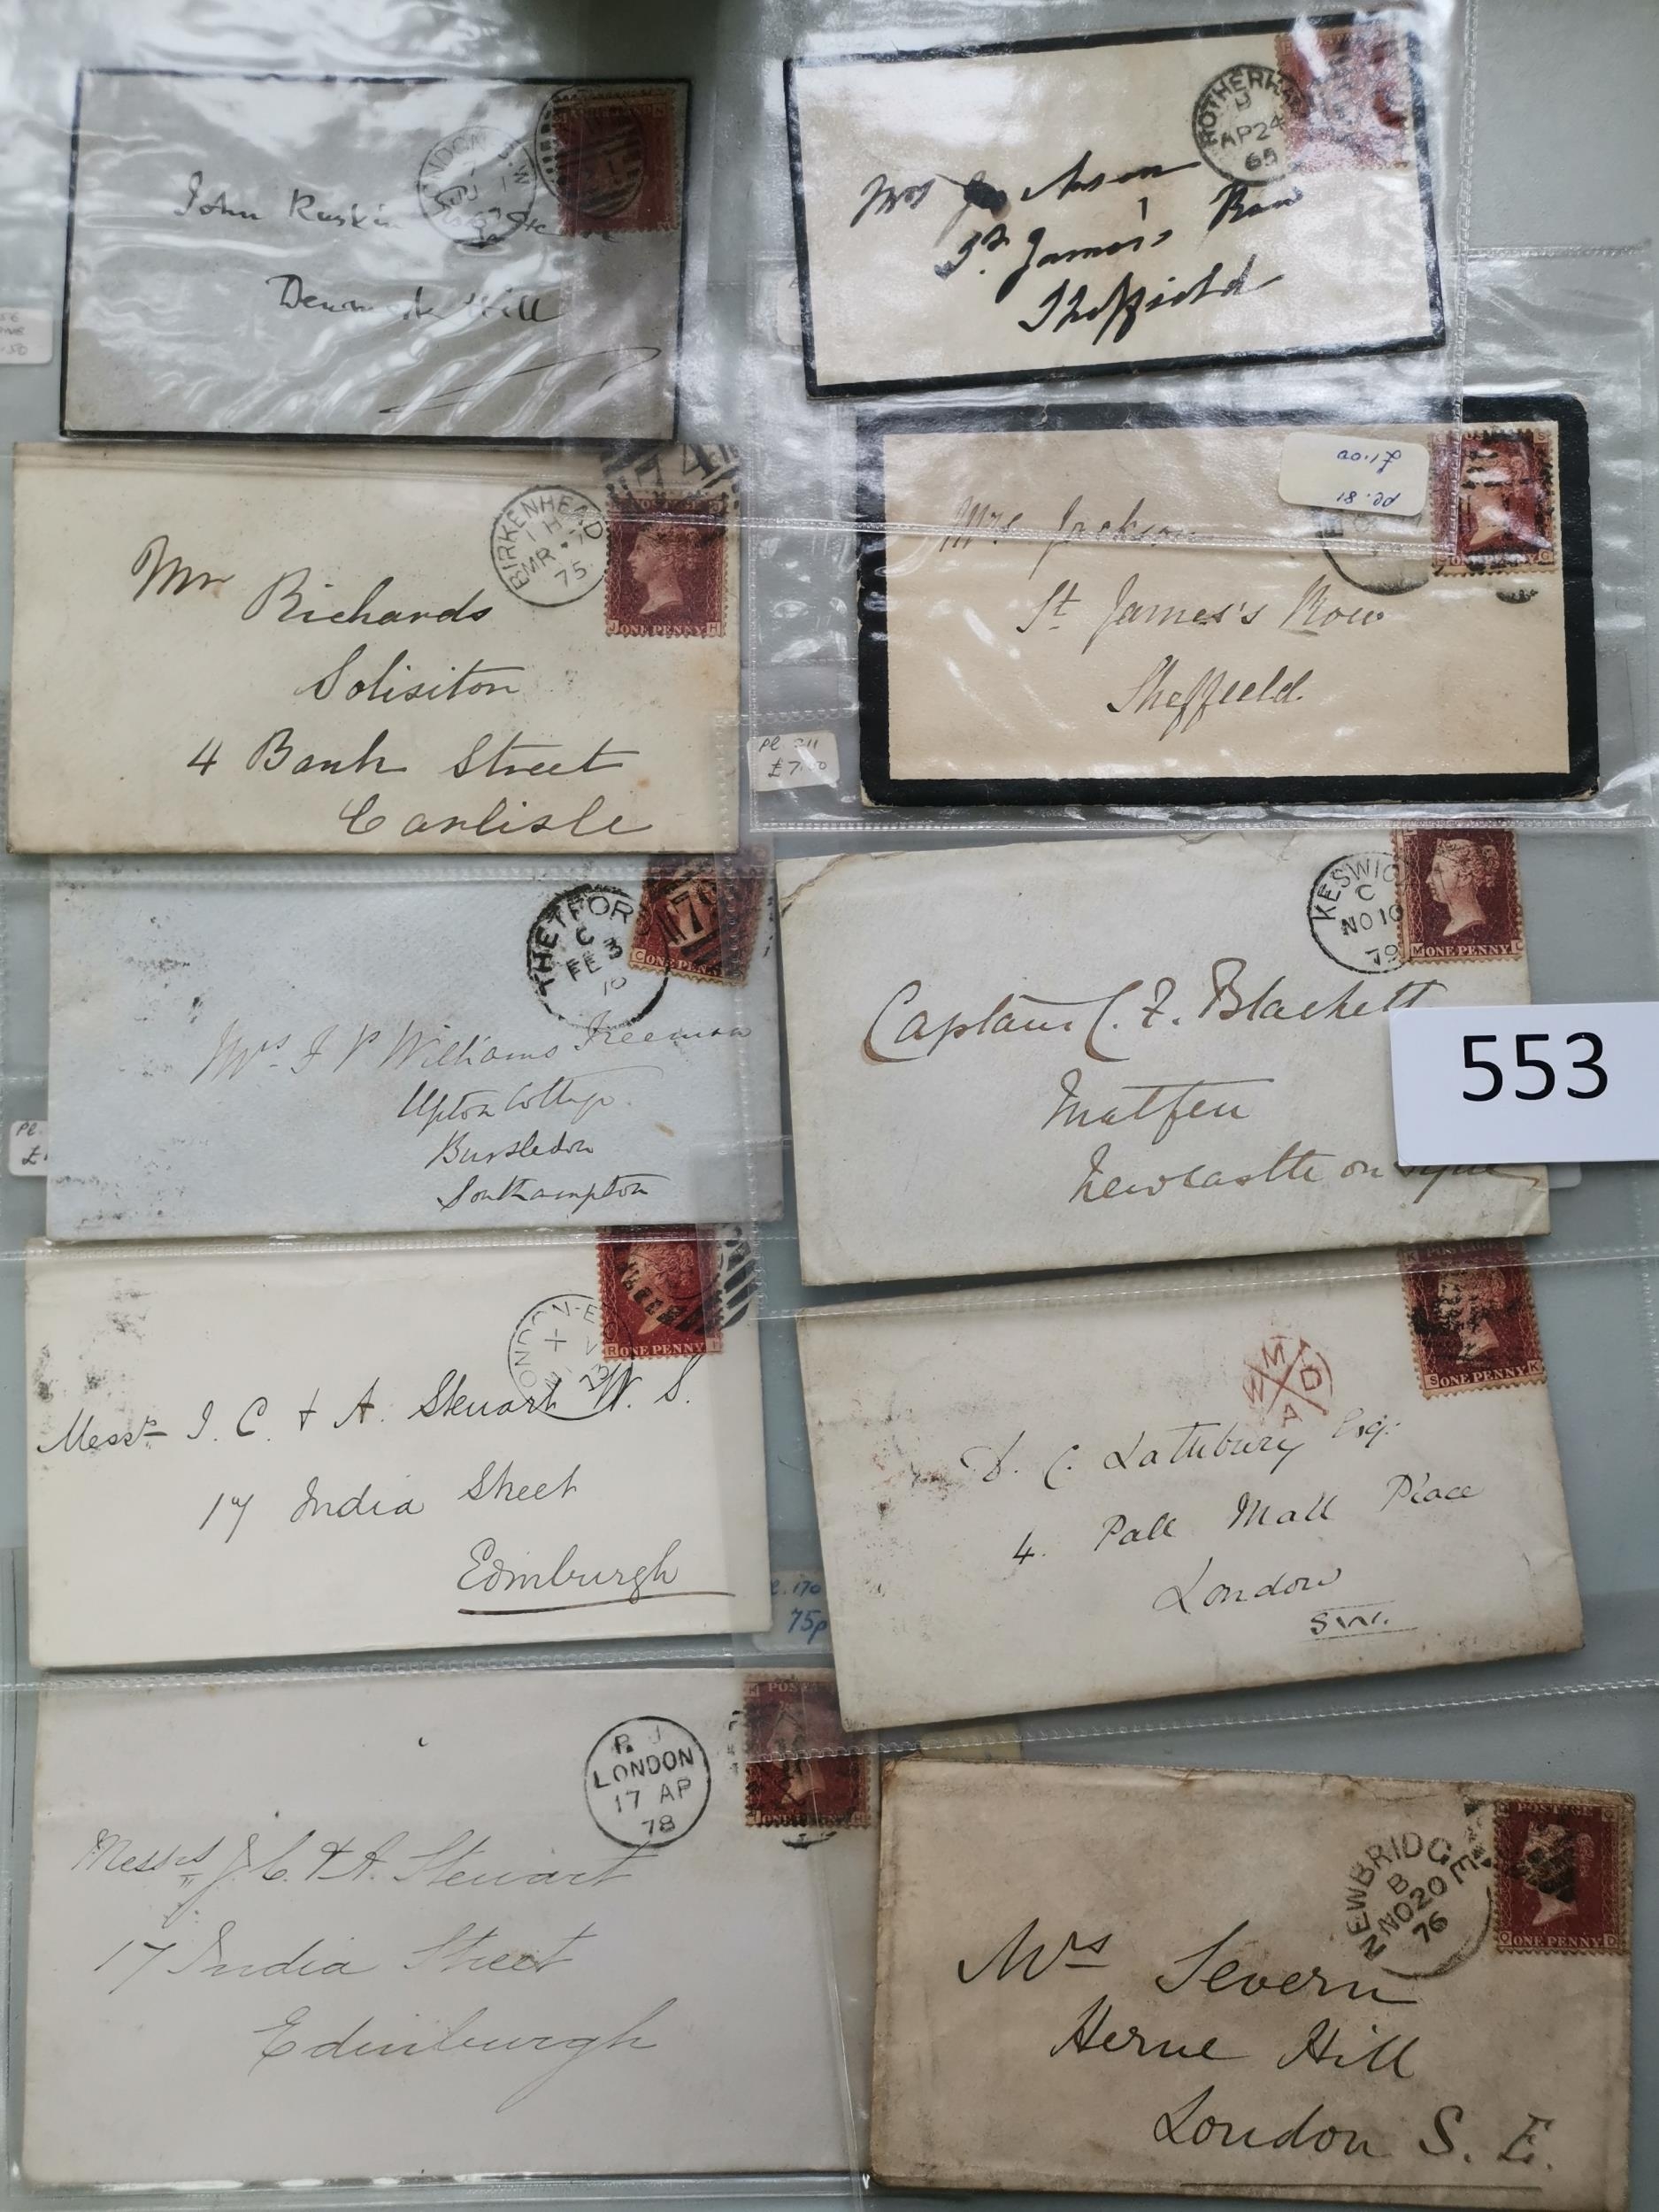 John Ruskin
Denmark Hill
LONDON S.W
ROTHERHA
H
AP 24
65
Mrs
St James's Row
Sheffield
£1.00
Pl. 81
Mrs Jackson
St James's Row
Sheffield.
74
BIRKENHEAD
1 H
MR 7
75
J ONE PENNY H
Mr Richards
Solisitor
4 Bank Street
Carlisle
Pl. 211
£7.50
THETFOR
C
FE 3
C ONE PENNY
Mrs J P Williams Freeman
Upton Cottage
Bursledon
Southampton
KESWIC
C
NO 10
79
M ONE PENNY L
Captain C. F. Blackett
Matfen
Newcastle on Tyne
553
ONDON-E
X
73
R ONE PENNY I
Messrs J. C. & A. Steuart W. S.
17 India Street
Edinburgh
POSTAGE
W M D A
S ONE PENNY K
D. C. Lathbury Esq.
4. Pall Mall Place
London
S.W.
Pl. 170
75p
POSTAGE
R J
LONDON
17 AP
78
ONE PENNY
Messrs J. C. & A. Steuart
17 India Street
Edinburgh
POSTAGE
NEWBRIDGE
B
NO 20
76
O ONE PENNY D
Mrs Severn
Herne Hill
London S. E.